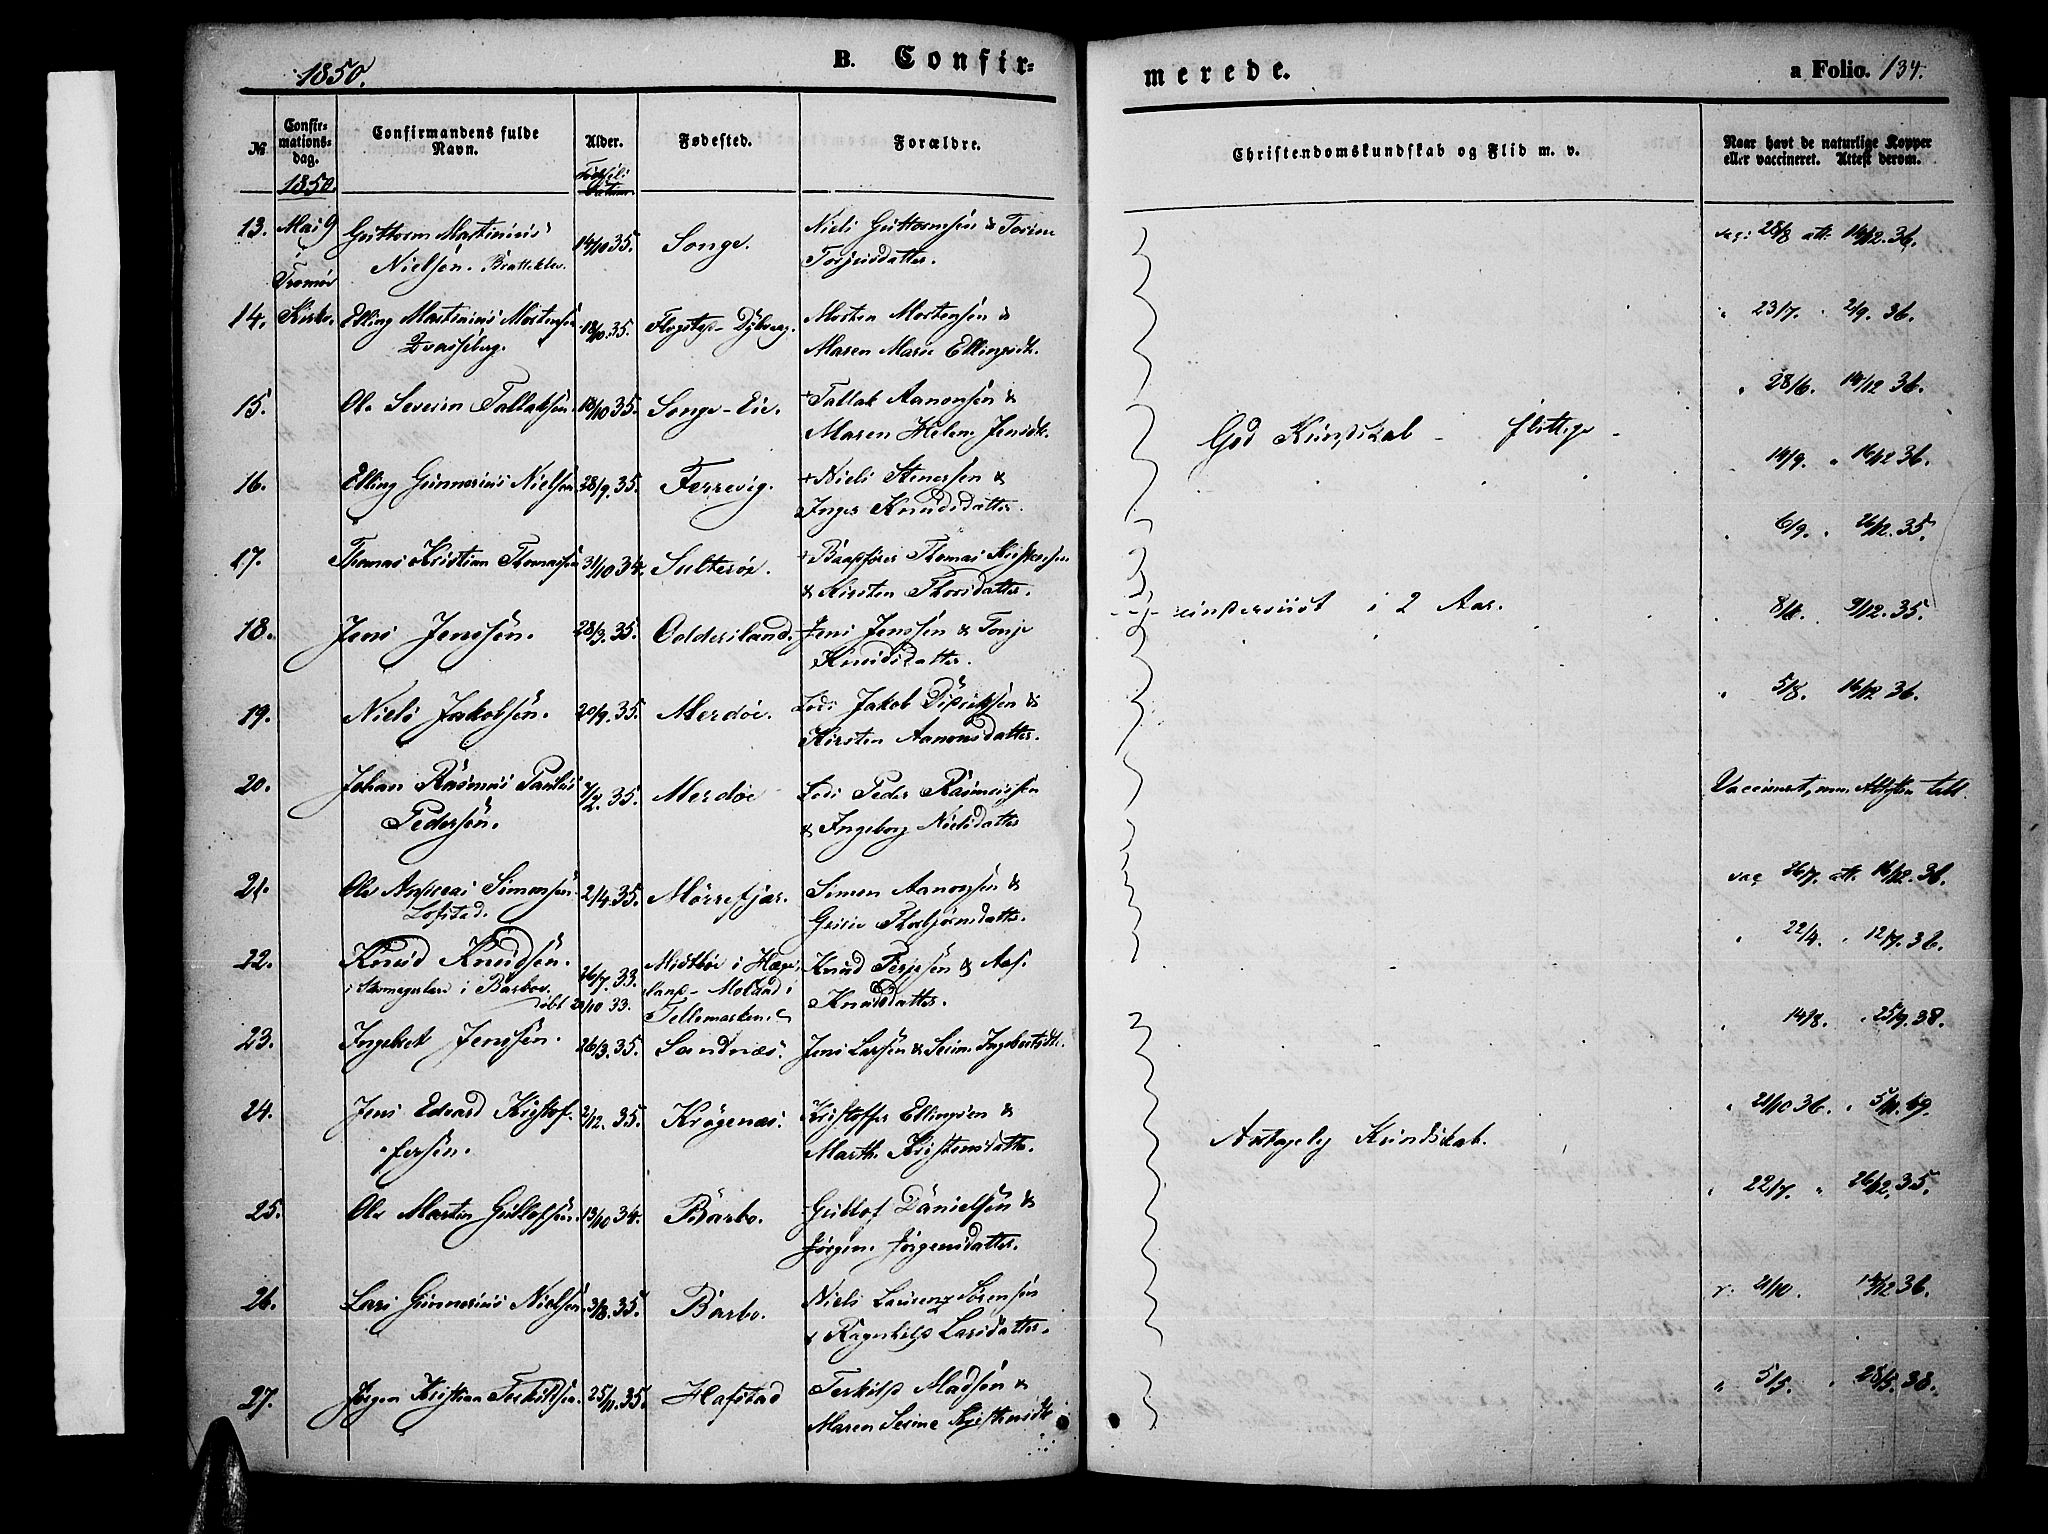 1850.
B. Confir-
merede.
a Folio. 134.
№
Confir-
mations-
dag.
1850
Confirmandens fulde
Navn.
Alder.
Fødsels
Datum
Fødested.
Forældre.
Christendomskundskab og Flid m. v.
Naar havt de naturlige Kopper
eller vaccineret. Attest derom.
13. Mai 9 Guttorm Martinius 14/10 35. Songe. Niels Guttormsen & Torine
i Nielsen. Brattekler. Torjusdatter.
vac: 28/8 att: 14/12. 36.
Tromø
14. Kirke. Elling Martinius Mortensen 18/10. 35. Flagstad - Dybvaag. Morten Mortensen &
Maren Marie Ellingsdt.
" 23/7. " 2/9. 36.
15. Ole Severin Tallaksen. 18/10 35. Songe - Eie. + Tallak Aanonsen &
Maren Helene Jensdt.
" 28/6. 14/12 36.
God Kundskab - flittige -
16. Elling Gunnerius Nielsen. 28/9. 35. Ferrevig. + Niels Stenersen &
Inger Knudsdatter.
" 14/9. " 16/12 36.
17. Thomas Kristian Thomassen 31/10 34. Sulterøe. + Baadfører Thomas Kristensen
& Kirsten Thorsdatter.
" 6/9. " 26/12. 35.
18. Jens Jenssen. 28/3. 35. Oddersland. Jens Jenssen & Tonje
Knudsdatter.
underviist i 2 Aar.
" 8/6. 9/12. 35.
19. Niels Jakobsen. 20/9. 35. Merdøe. Lods Jakob Didriksen &
Kirsten Aanonsdatter.
" 5/8. 16/12 36.
20. Johan Rasmus Paulus 7/2. 35. Merdøe Lods Peder Rasmussen
Pedersen. & Ingeborg Nielsdatter
Vaccineret, men Attesten tabt.
21. Ole Andreas Simonsen. 2/4. 35. Mørrefjær. Simon Aanonsen &
Lofstad. Grieie Thorbjørnsdatter.
vac 26/7. att. 16/12. 36.
22. Knud Knudsen. 26/7. 33. Midtbøe i Hæge- Knud Terjesen & Aase
i Barboe. døbt 20/10 33. land - Moland i Knudsdatter.
Tellemarken.
" 22/4. " 12/7. 36.
23. Ingebret Jenssen. 26/3. 35. Sandnæs. Jens Larsen & Serine Ingebretsdt.
" 14/8. " 25/9. 38.
24. Jens Edvard Kristof- 2/12. 35. Krøgenæs. Kristoffer Ellingsen &
fersen. Marthe Kristensdatter.
" 21/10 36. " 5/11. 49.
Antagelig Kundskab.
25. Ole Martin Gullofsen. 13/10 34. Barbo. Gullof Danielsen &
Jørgine Jørgensdatter.
" 22/7. " 26/12. 35.
26. Lars Gunnerius Nielsen. 3/8. 35. Barbo. Niels Laurenz Sørensen
& Ragnhild Larsdatter.
v: 21/10. 14/12 36.
27. Jørgen Kristian Terkildsen. 25/11. 35. Hafstad Terkild Madsen &
Maren Serine Kristensdt.
" 5/5. " 28/5. 38.